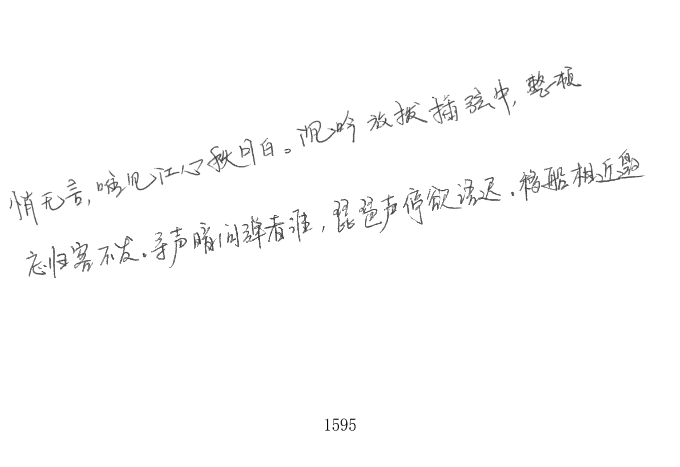 悄无言,唯见江心秋月白。沉吟放拨插弦中,整顿
忘归客不发.寻声暗问弹者谁,琵琶声停欲语迟.移船相近邀
1595